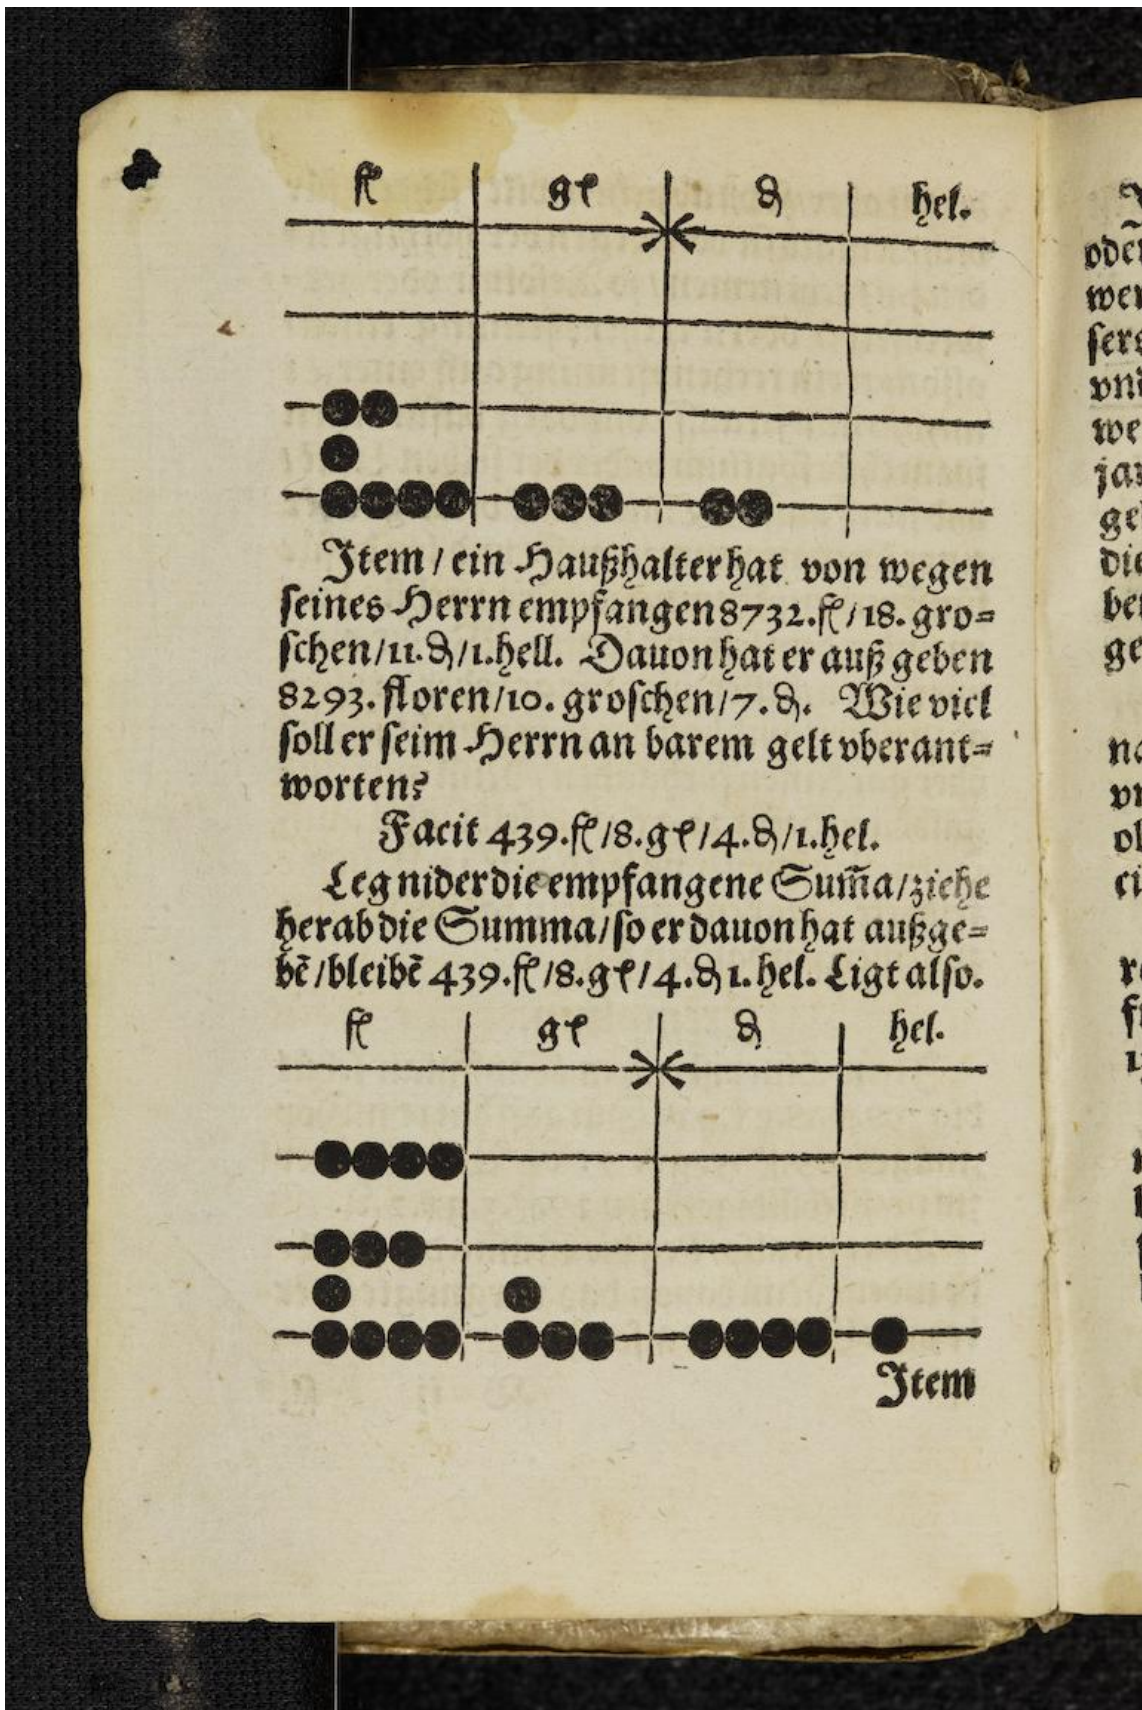 fl gr ₰ hel.
Item / ein Haußhalter hat von wegen
seines Herrn empfangen 8732.fl / 18. gro=
schen/11.₰/1.hell. Dauon hat er auß geben
8293. floren/10. groschen/7.₰. Wie viel
soll er seim Herrn an barem gelt vberant=
worten?
Facit 439.fl /8.gr /4.₰/1.hel.
Leg nider die empfangene Sum̃a/ziehe
herab die Summa/so er dauon hat außge=
bẽ /bleibẽ 439.fl /8.gr /4.₰ 1. hel. Ligt also.
fl gr ₰ hel.
Item
oder
wer
vnd
we
die